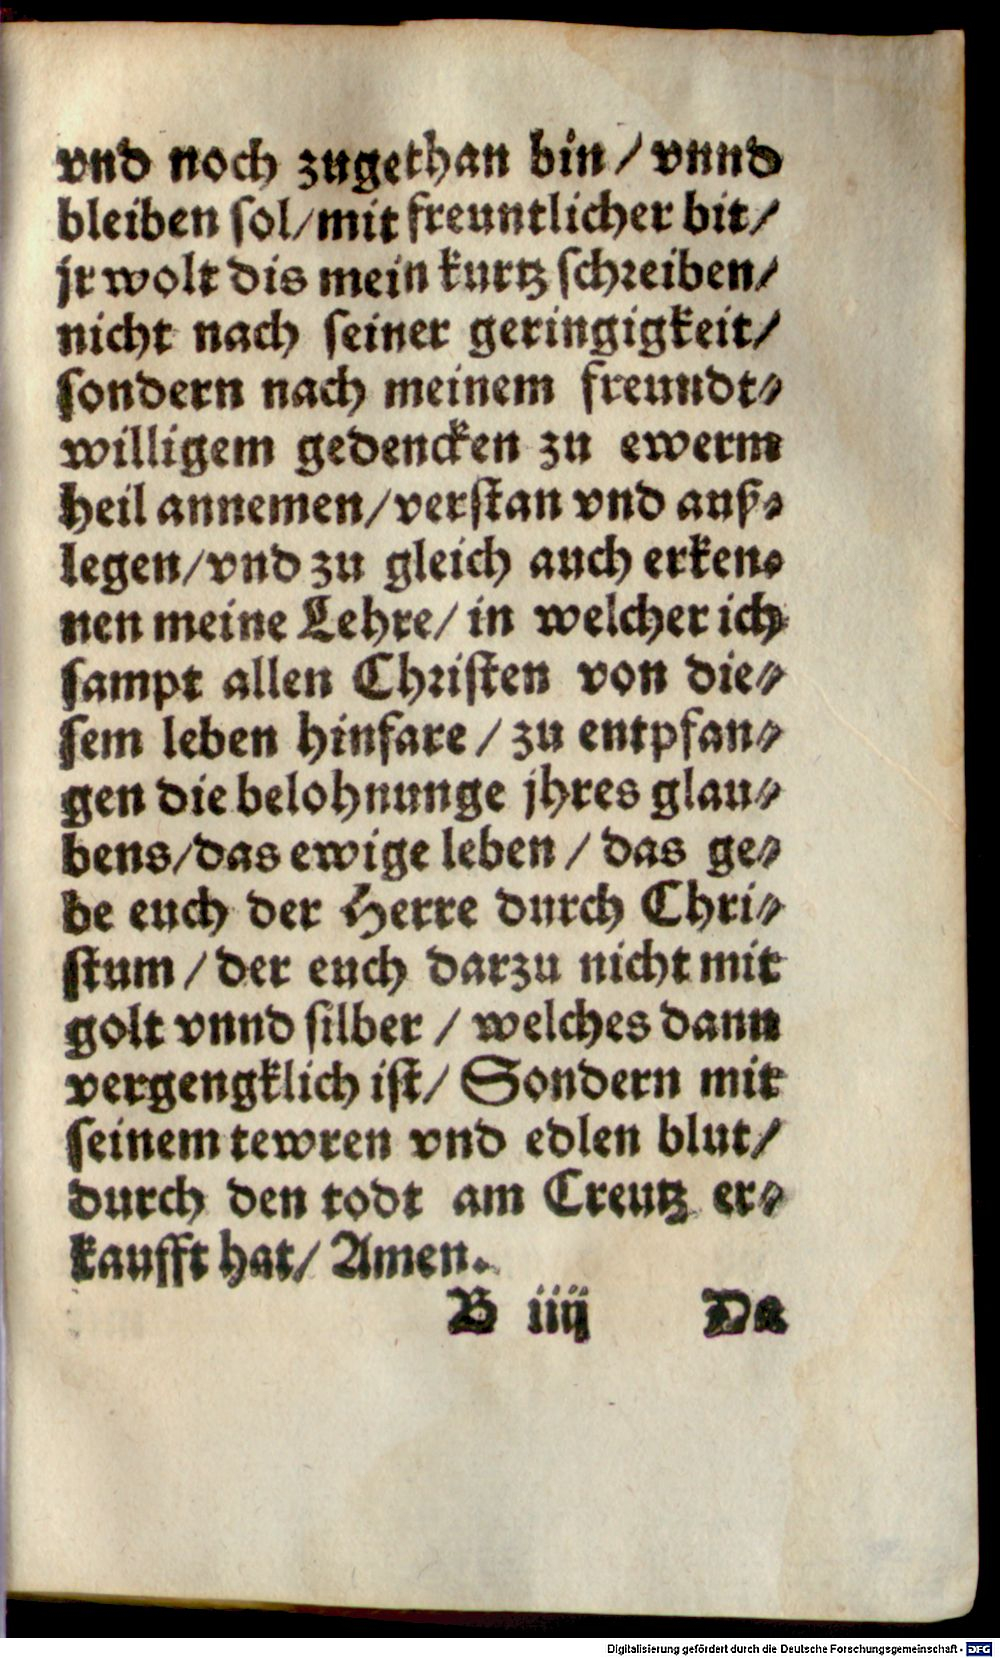 vnd noch zugethan bin / vnnd
bleiben sol/mit freuntlicher bit/
jr wolt dis mein kurtz schreiben/
nicht nach seiner geringigkeit/
sondern nach meinem freundt⸗
willigem gedencken zu ewerm
heil annemen/verstan vnd auß⸗
legen/vnd zu gleich auch erken⸗
nen meine Lehre/ in welcher ich
sampt allen Christen von die⸗
sem leben hinfare / zu entpfan⸗
gen die belohnunge jhres glau⸗
bens/das ewige leben / das ge⸗
be euch der Herre durch Chri⸗
stum / der euch darzu nicht mit
golt vnnd silber / welches dann
vergengklich ist/ Sondern mit
seinem tewren vnd edlen blut/
durch den todt am Creutz er⸗
kaufft hat/ Amen.
B iiij Da
Digitalisierung gefördert durch die Deutsche Forschungsgemeinschaft - DFG